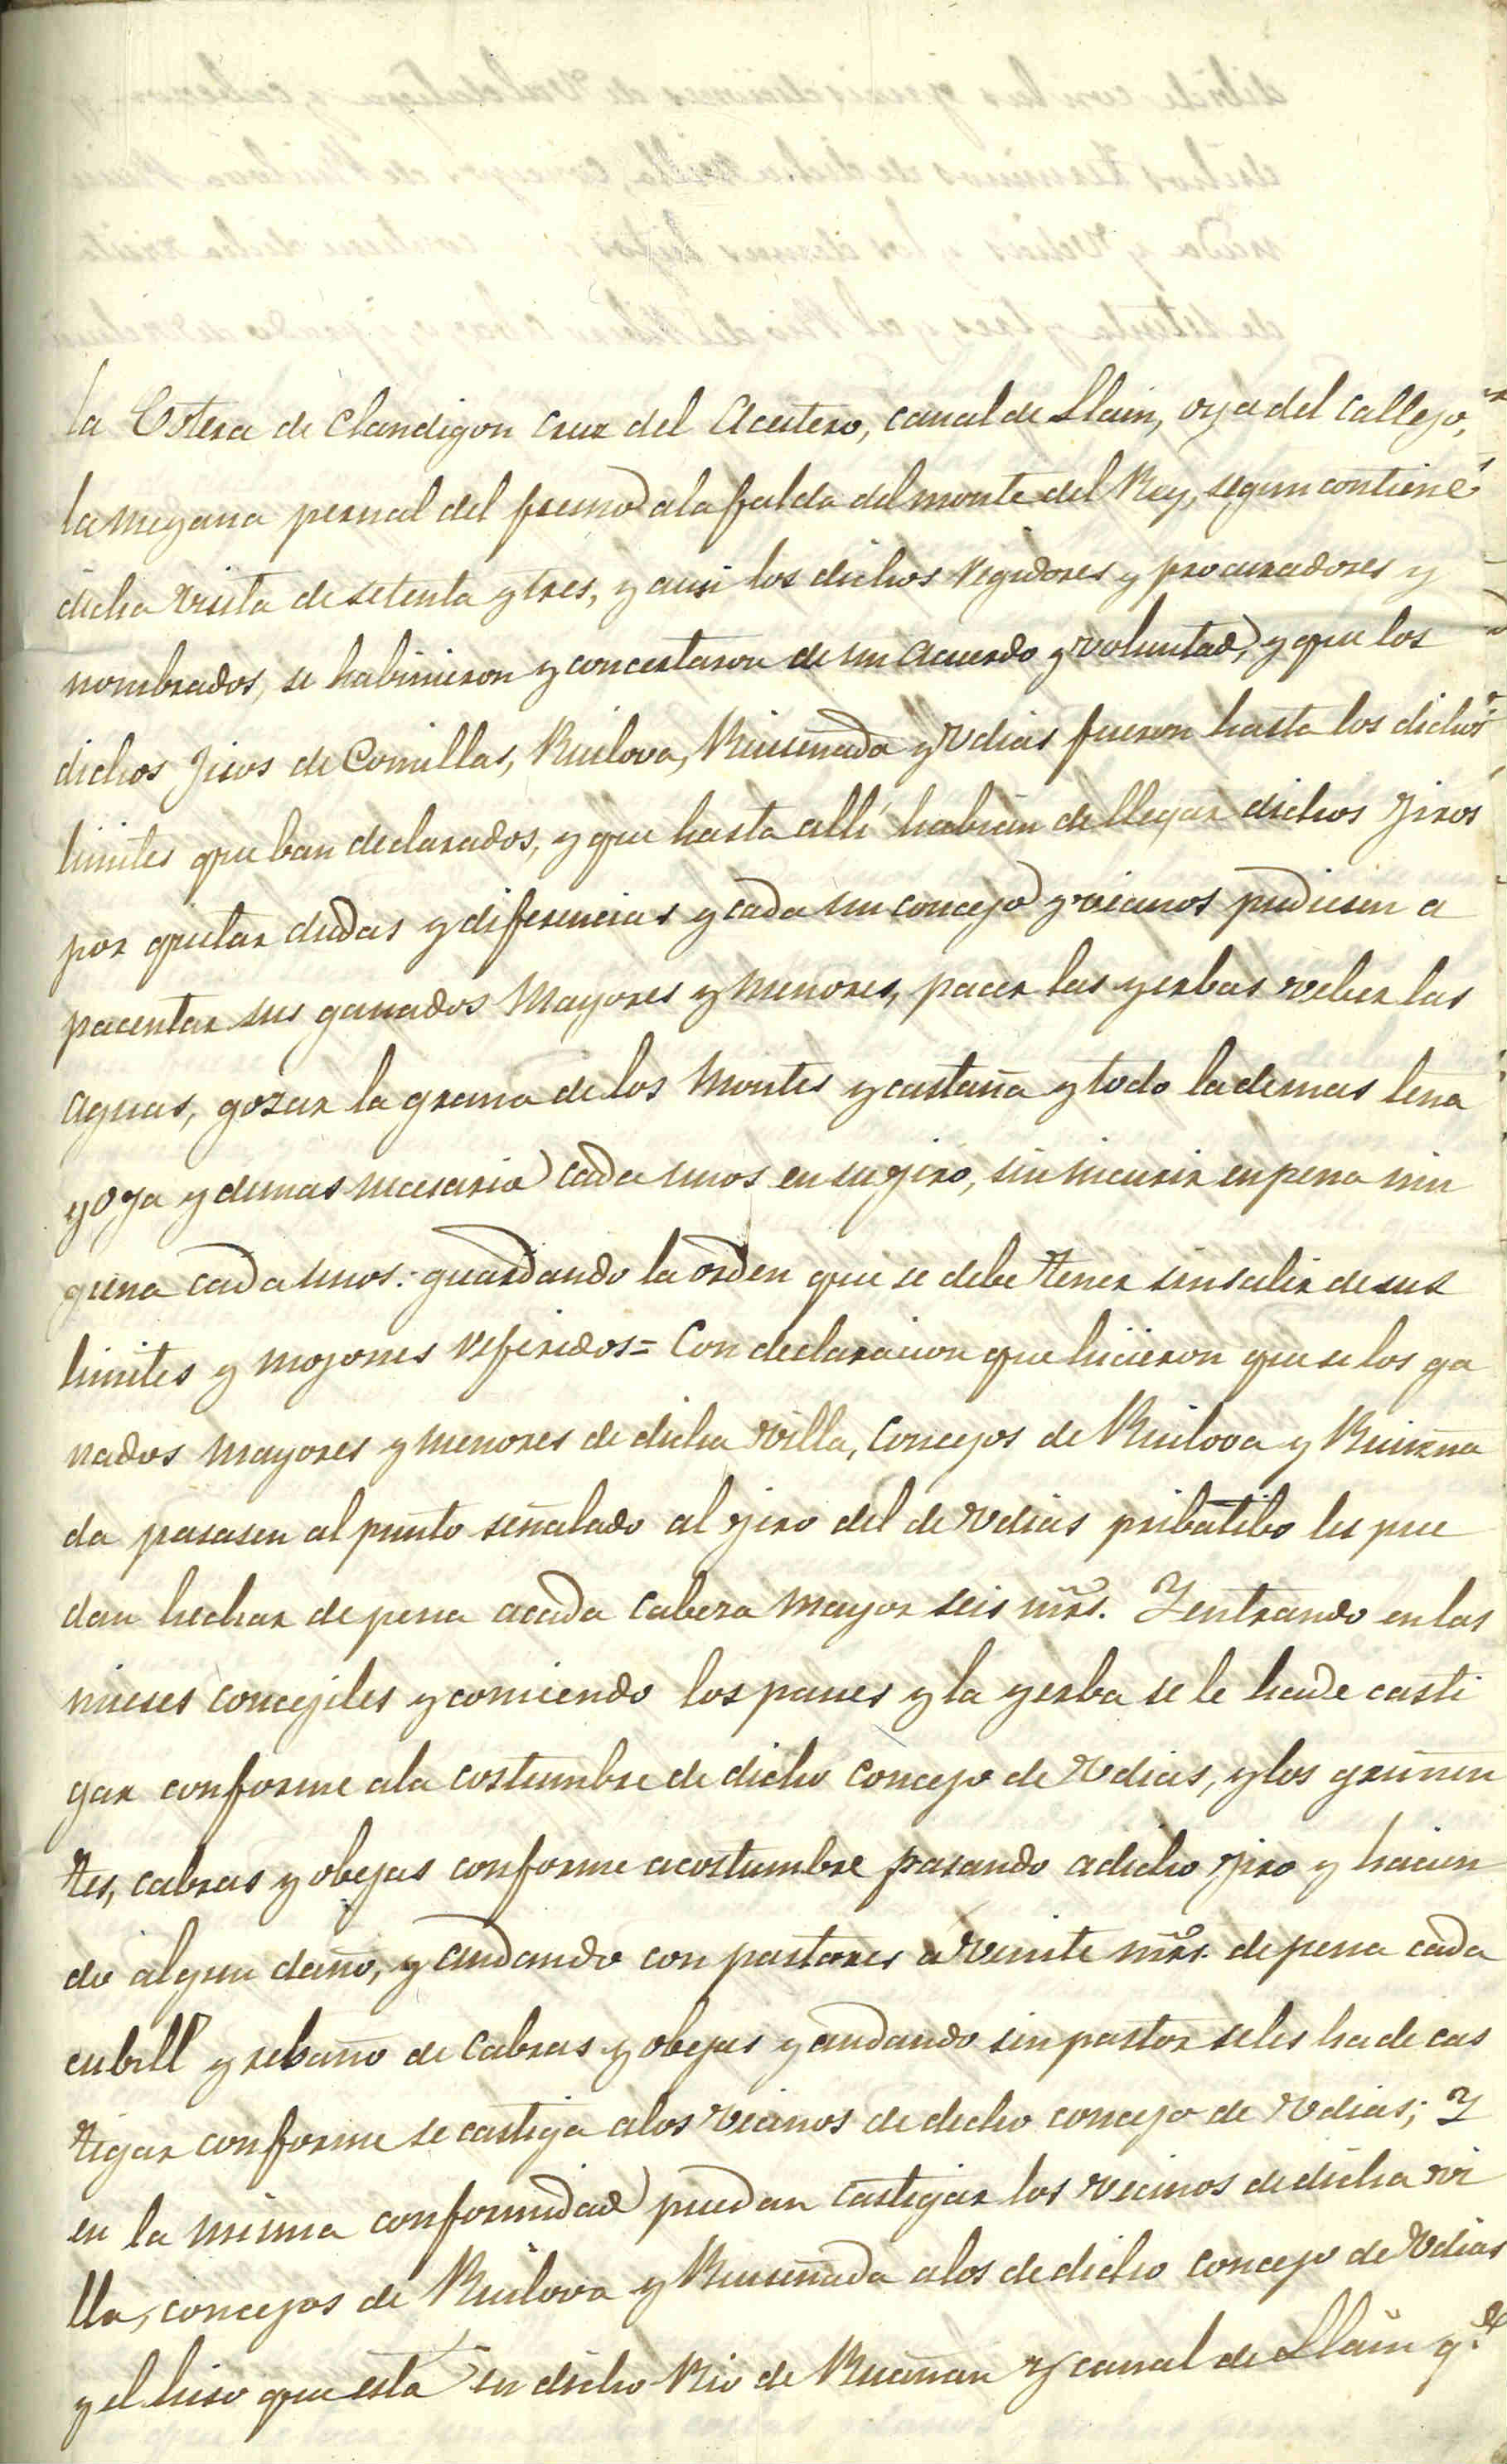 la Estera de Clandigon Cruz del Aceitero, canal de Llain, oya del callejo,
la mezana pernal del fresno a la falda del monte del Rey, segun contiene
dicha visita de setenta y tres, y ansi los dichos regidores y procuradores y
nombrados, se habinieron y concertaron de un acuerdo y voluntad, y que los
dichos Jisos de Comillas, Ruilova, Ruiseñada y Vdias fueron hasta los dichos
limites que ban declarados, y que hasta allí habian de llegar dichos Jiros
por quitar dudas y diferencias y cada un concejo y vecinos pudiesen a
pacentar sus ganados Mayores y menores, pacer las yerbas veber las
aguas, gozar la grana de los Montes y castaña y todo la demas leña
y oja y demas necesaria cada unos en su jiro, sin incurir en pena nin
guna cada unos: guardando la orden que se debe tener sin salir de sus
limites y mojones referidos = Con declaracion que hicieron que si los ga
nados mayores y menores de dicha villa, Concejos de Ruilova y Ruiseña
da pasasen al punto señalado al jiro del de Vdias pribatibo les pue
dan hechar de pena a cada cabeza mayor seis mrs. Y entrando en las
mieses concejiles y comiendo los panes y la yerba se le ha de casti
gar conforme a la costumbre de dicho concejo de Vdias, y los gruñen
tes, cabras y obejas conforme a costumbre pasando a dicho jiro y hacien
do algun daño, y andando con pastores a veinte mrs. de pena cada
cubill y rebaño de cabras y obejas y andando sin pastor se les ha de cas
tigar conforme se castiga a los vecinos de dicho concejo de Vdias; Y
en la misma conformidad puedan castigar los vecinos de dicha vi
lla, concejos de Ruilova y Ruiseñada a los de dicho concejo de Vdias
y el hiso que está en dicho Rio de y canal de Llain q.e